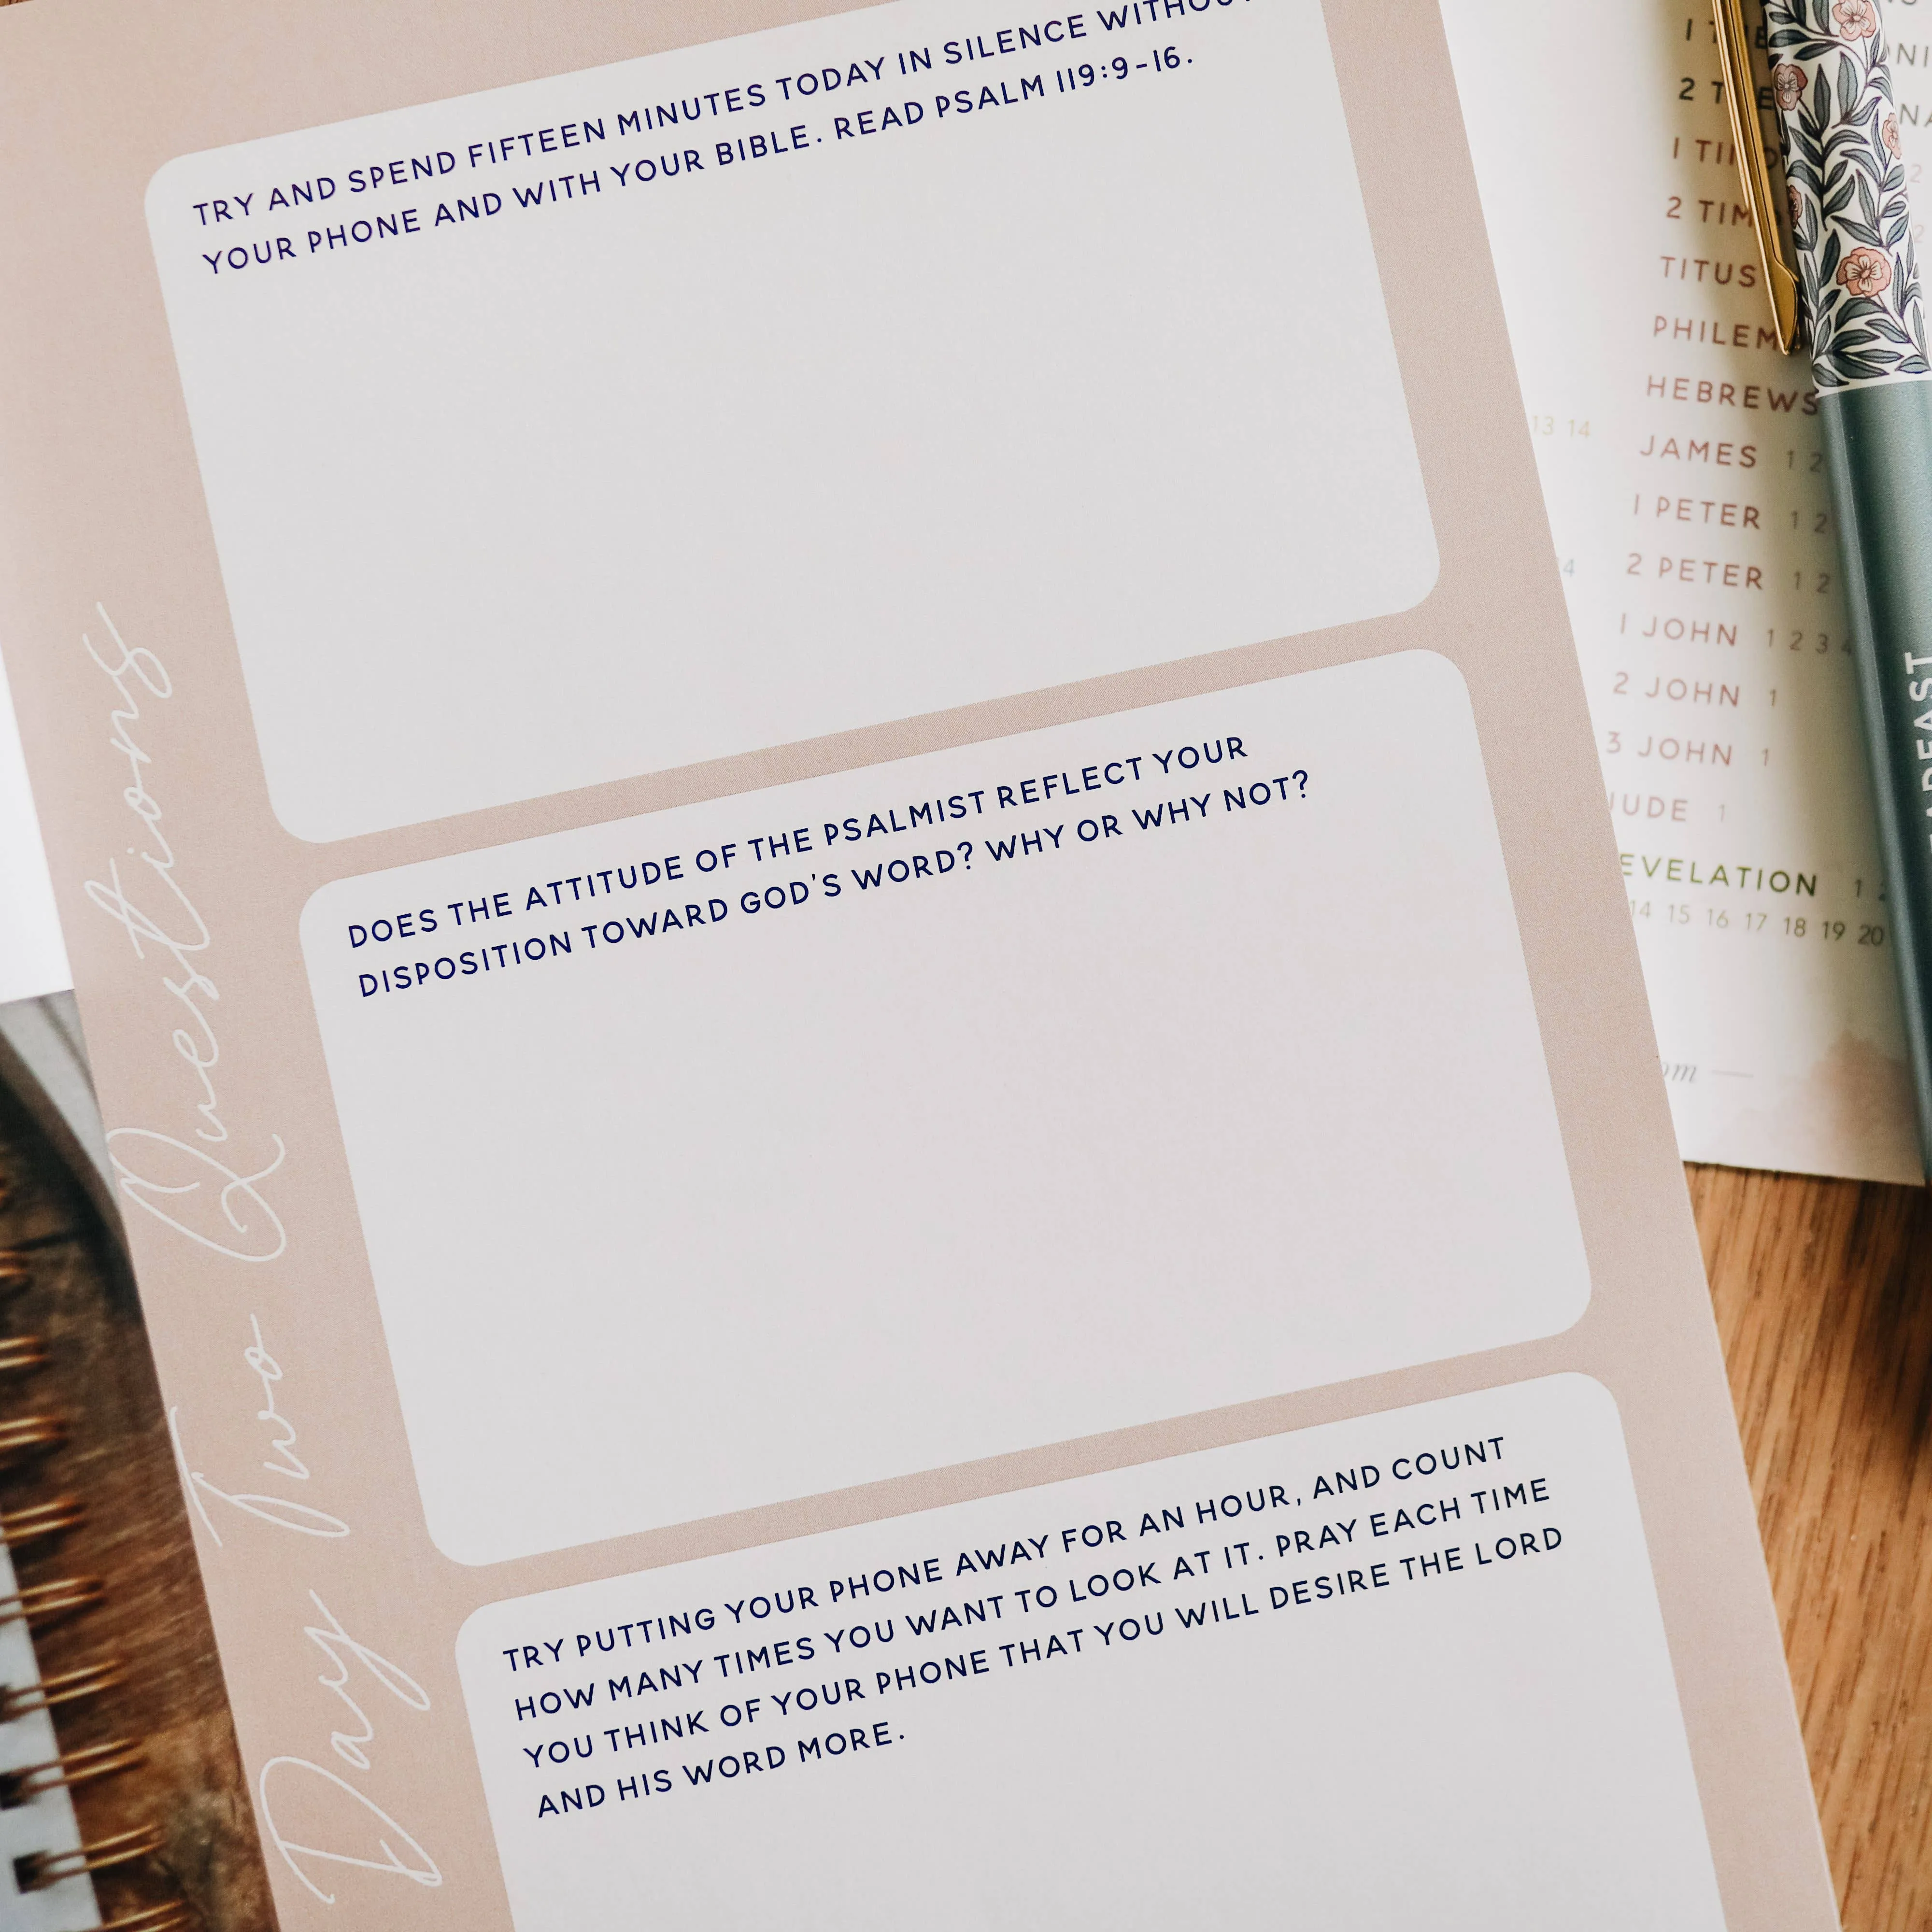 TRY AND SPEND FIFTEEN MINUTES TODAY IN SILENCE
YOUR PHONE AND WITH YOUR BIBLE. READ PSALM 119:9-16.
DOES THE ATTITUDE OF THE PSALMIST REFLECT YOUR
DISPOSITION TOWARD GOD'S WORD? WHY OR WHY NOT?
TRY PUTTING YOUR PHONE AWAY FOR AN HOUR, AND COUNT
HOW MANY TIMES YOU WANT TO LOOK AT IT. PRAY EACH TIME
YOU THINK OF YOUR PHONE THAT YOU WILL DESIRE THE LORD
AND HIS WORD MORE.
Day Two Questions
2 TIM
TITUS
PHILEM
HEBREWS
13 14
JAMES 1 2
1 PETER 1 2
2 PETER 1 2
1 JOHN 1 2 3 4
2 JOHN 1
3 JOHN 1
JUDE 1
EVELATION 1
14 15 16 17 18 19 20